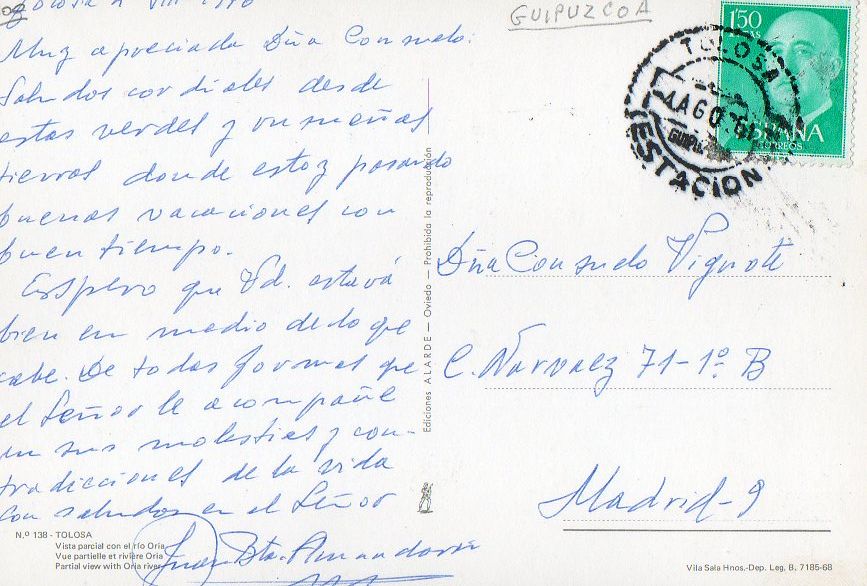 Muy apreciada Dña Consuelo:
Saludos cordiales desde
estas verdes y risueñas
tierras donde estoy pasando
buenas vacaciones con
buen tiempo.
Espero que Vd. estará
bien en medio de lo que
cabe. De todas formas que
el Señor le acompañe
en sus molestias y con-
tradicciones de la vida
Con saludos en el Señor
Juan Bta.
Nº 138 - TOLOSA
Vista parcial con el río Oria
Vue partielle et rivière Oria
Partial view with Oria river
Ediciones ALARDE — Oviedo — Prohibida la reproducción
GUIPUZCOA
1'50
PTAS
ESPAÑA
CORREOS
TOLOSA
AGO
GUIPU
(ESTACION)
Dña Consuelo Vignote
C. Narvaez 71-1º B
Madrid-9
Vila Sala Hnos.-Dep. Leg, B. 7185-68